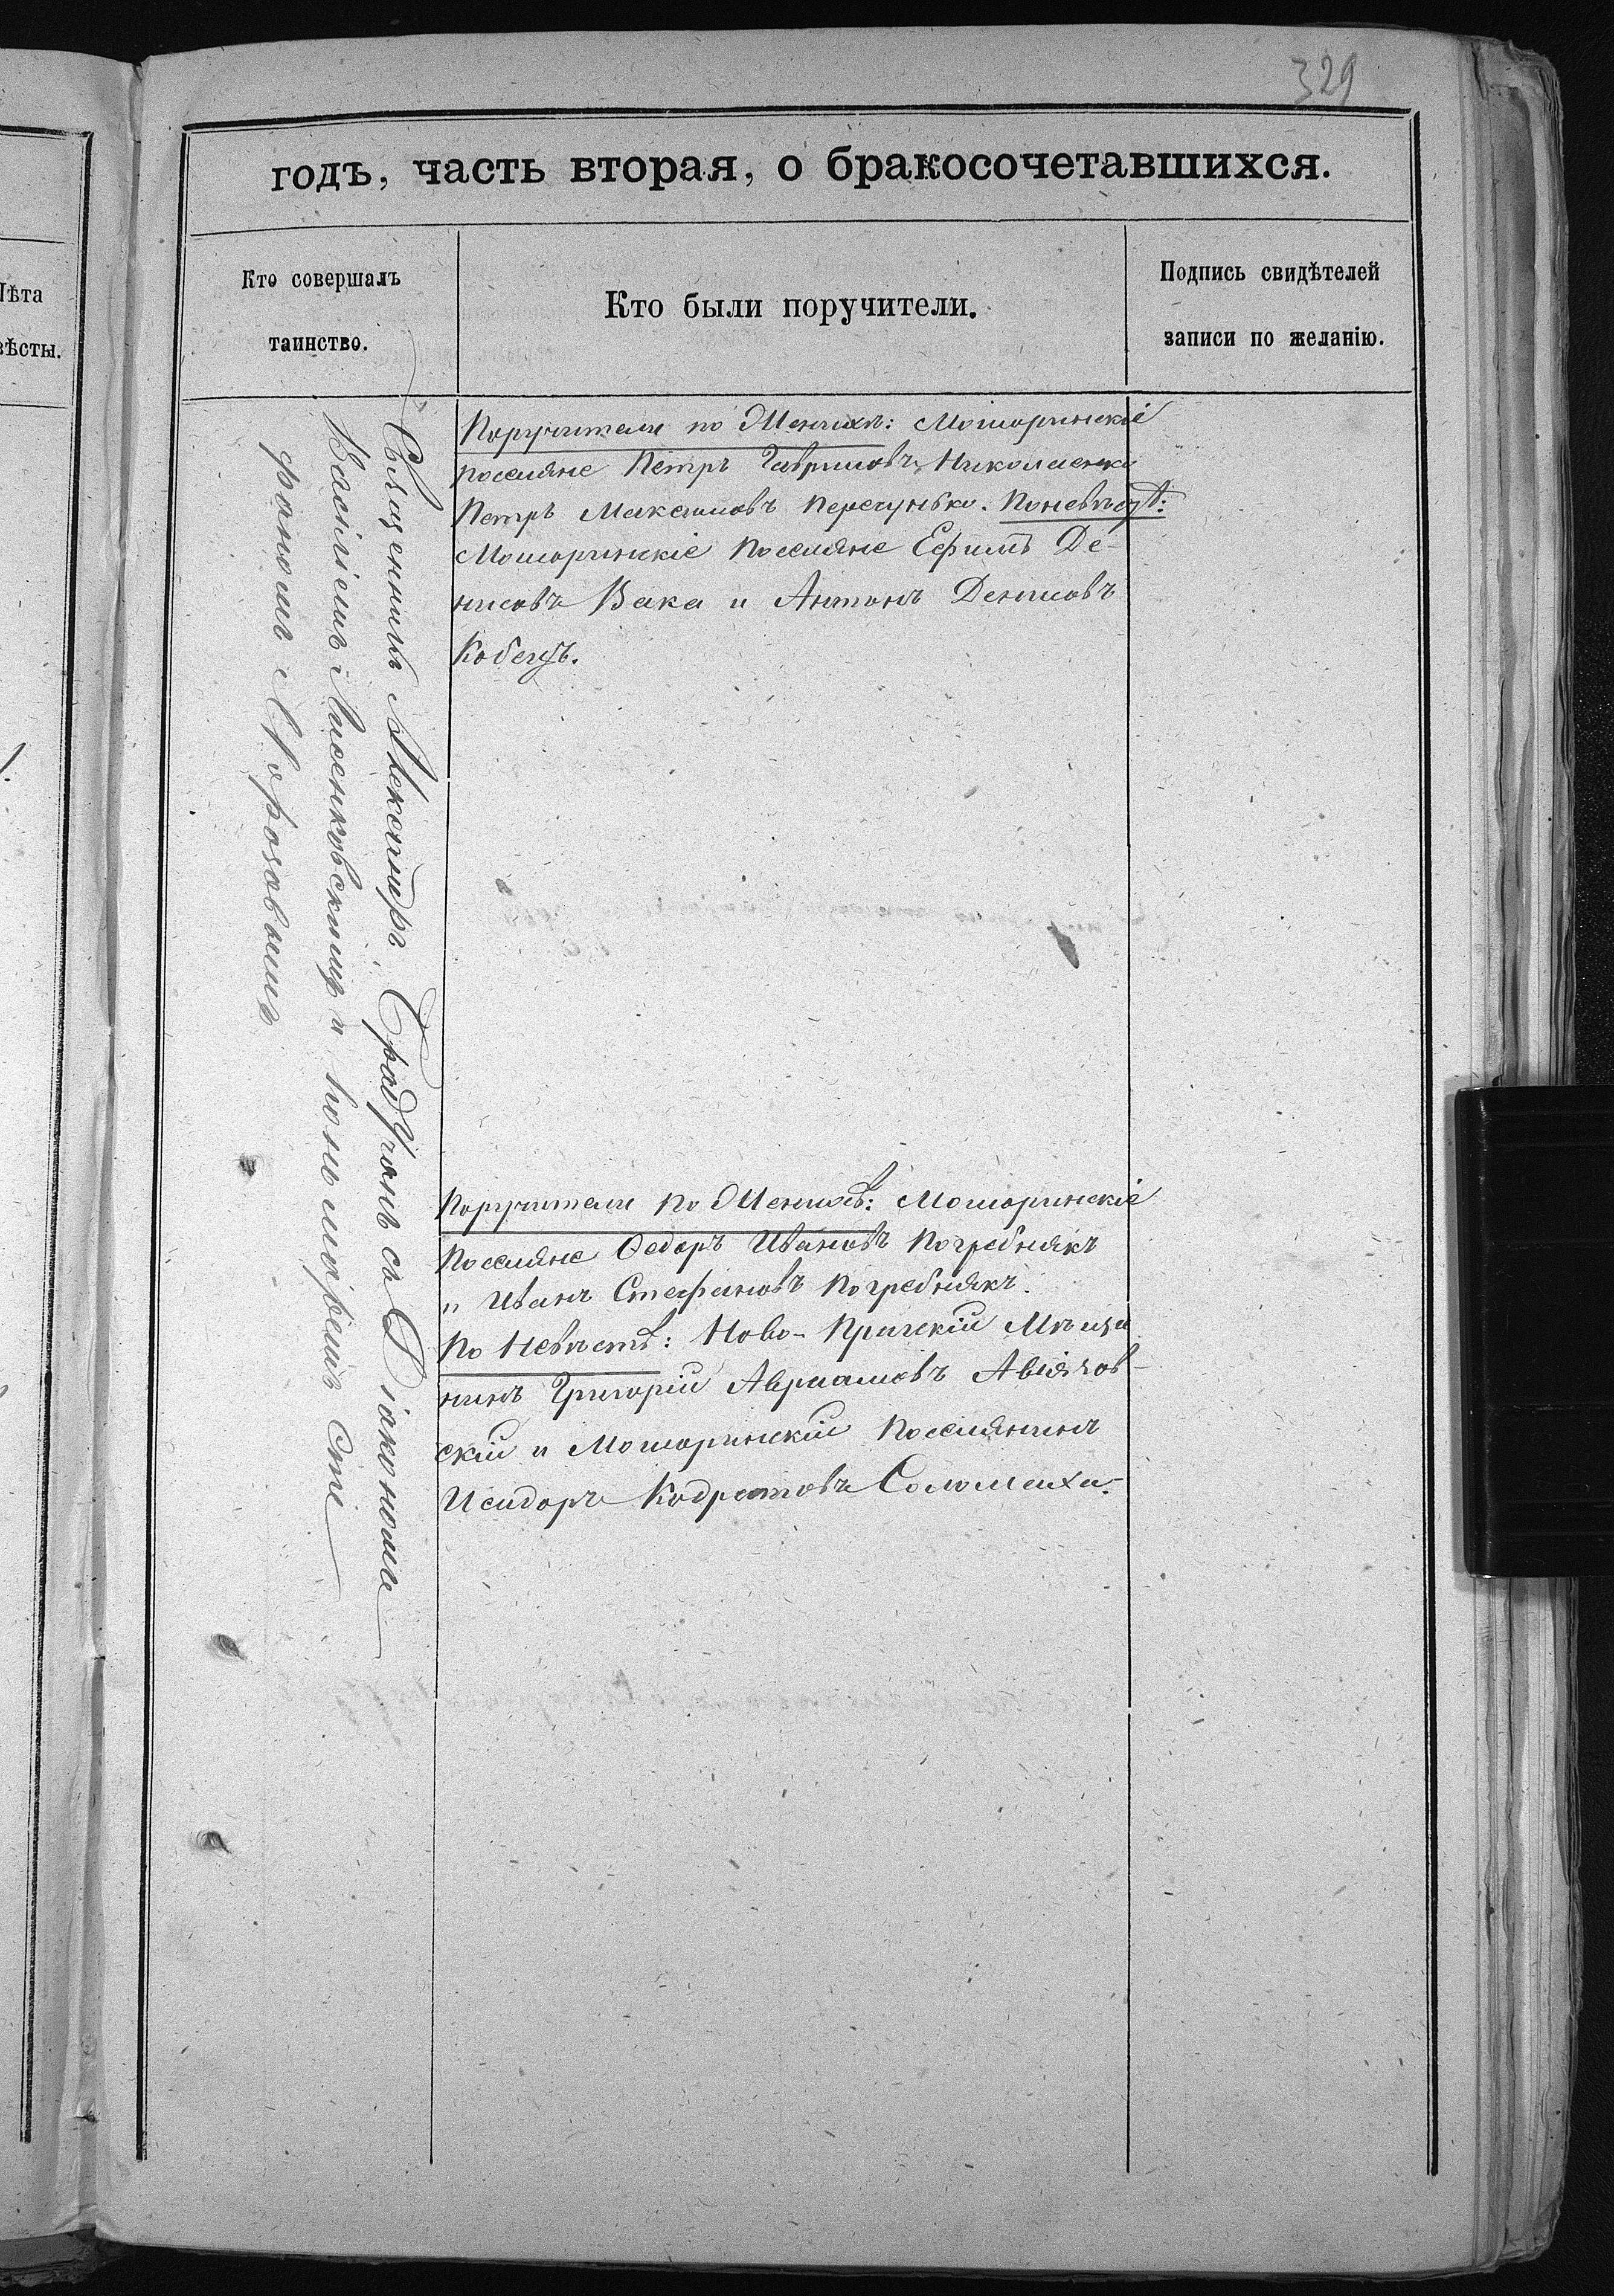 329
годъ, часть вторая, о бракосочетавшихся.
Лѣта
вѣсты.
Кто совершалъ
таинство.
Кто были поручители.
Подпись свидѣтелей
записи по желанію.
Священникъ Александръ Бродучанъ съ Діакономъ
Василіемъ Лисенковскимъ и пономаремъ Сте
фаномъ Морозовымъ
Поручители по Женихѣ: Мошоринскіе
поселяне Петръ Гавриловъ Николаенко
Петръ Максимовъ Перегунько. Поневѣстѣ:
Мошоринскіе поселяне Ефимъ Де-
нисовъ Вака и Антонъ Денисовъ
Кобецъ.
Поручители по Женихѣ: Мошоринскіе
Поселяне Ѳедоръ Ивановъ Погребнякъ
и Иванъ Стефановъ Погребнякъ.
По Невѣстѣ: Ново-Пражскій Мѣща
нинъ Григорій Авраамовъ
скій и Мошоринскій Поселянинъ
Исидоръ Кодратовъ Соломаха.